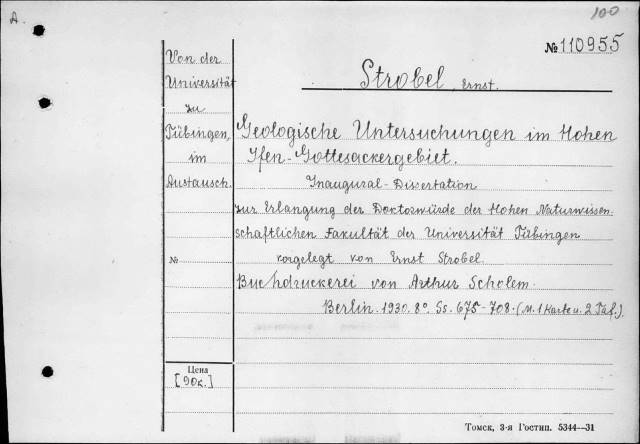 A.
100
№ 110955
Von der
Universität
zu
Tübingen,
im
Austausch.
№
Цена
[90к.]
Strobel, Ernst.
Geologische Untersuchungen im Hohen
Ifen-Gottesackergebiet.
Inaugural-Dissertation
zur Erlangung der Doktorwürde der Hohen Naturwissen-
schaftlichen Fakultät der Universität Tübingen
vorgelegt von Ernst Strobel.
Buchdruckerei von Arthur Scholem.
Berlin. 1930. 8°. Ss. 675-708. (M. 1 Karte u. 2 Taf.)
Томск, 3-я Гостип. 5344—31